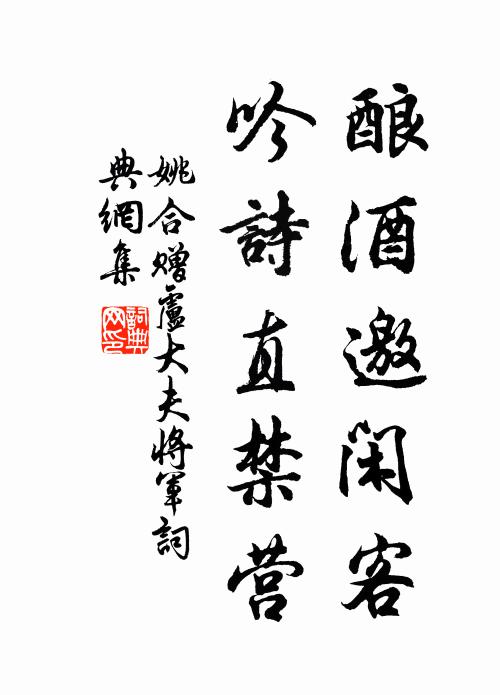 酿酒邀闲客
吟詩直禁营
姚合赠盧大夫将軍詞
典網集
詞典网印